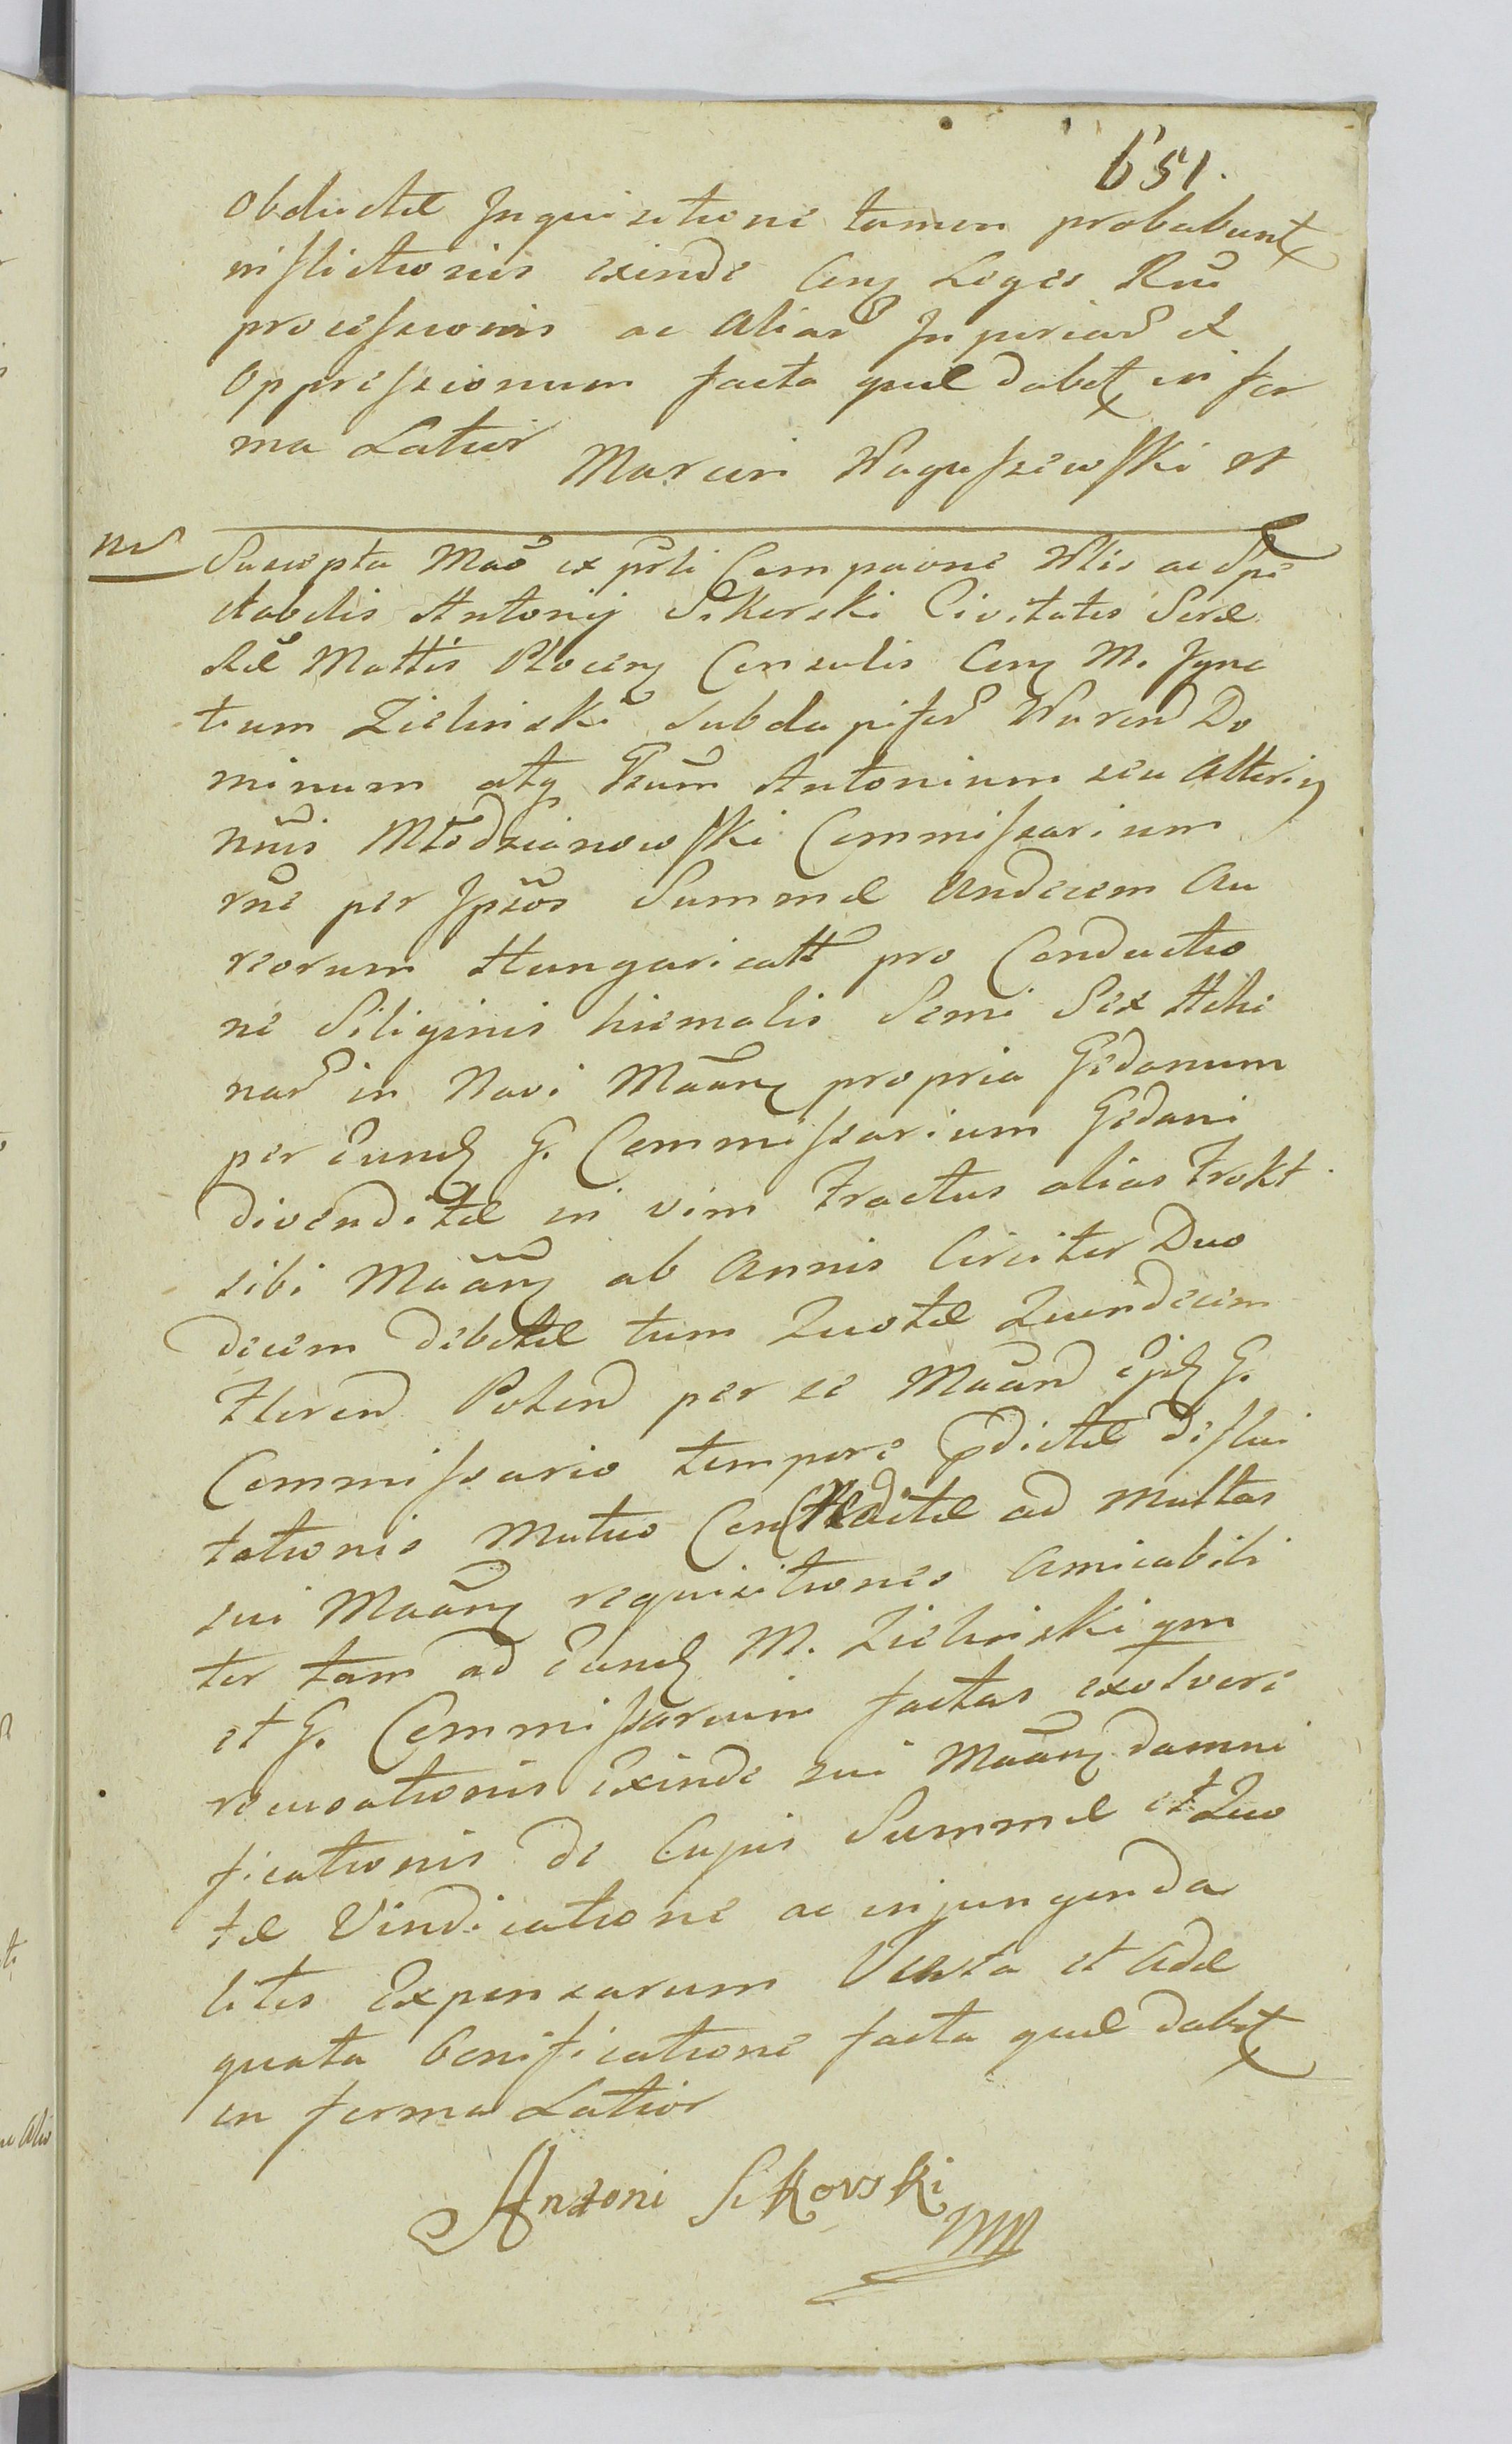 651.
Obductae Inquisitione tamen probabunt
inflictionis exinde Cong Leges Rni
processionis ac Aliar Injuriar et
Oppressionum facta quae dabet in for
ma Latior Marcin Wagaszewski et
nd Suscepta Mao ex prli Compaione Nlis ac Spe
ctabilis Antonij Sikorski Civitatis Serae
Rae Mattis Plocen Consulis Cong M. Igna
tium Zielinski Subdapifer Wuren Do
minum atq Gsum Antonium seu Alterig
nnis Młodzianowski Commissarium
rne per Ipsos Summae Undecem Au
reorum Hungaricall pro Conductio
ne Siliginis hiemalis Semi Sex Hthe
nar in Navi Maang propria Gedanum
per Eund G. Commissarium Gedani
divenditae in vim Tractus alias Frokt
sibi Maang ab Annis Circiter Duo
decem debitae tum Quotae Quindecem
Floren Polon per se Maand ejd G.
Commissario tempore pdictae deflui
tationis Mutuo ad Multas
sui Maang requisitiones Amicabili
ter tam ad Eund M. Zielinski qm
et G. Commissarium factas exolvere
recusationis Exinde sui Maang damni
ficationis de Cujus Summae et Quo
tae Vindicatione ac injungenda
litis Expensarum Juxta et Adae
quata bonificatione facta quae dabet
in forma Latior
Antoni Sikorski
mp